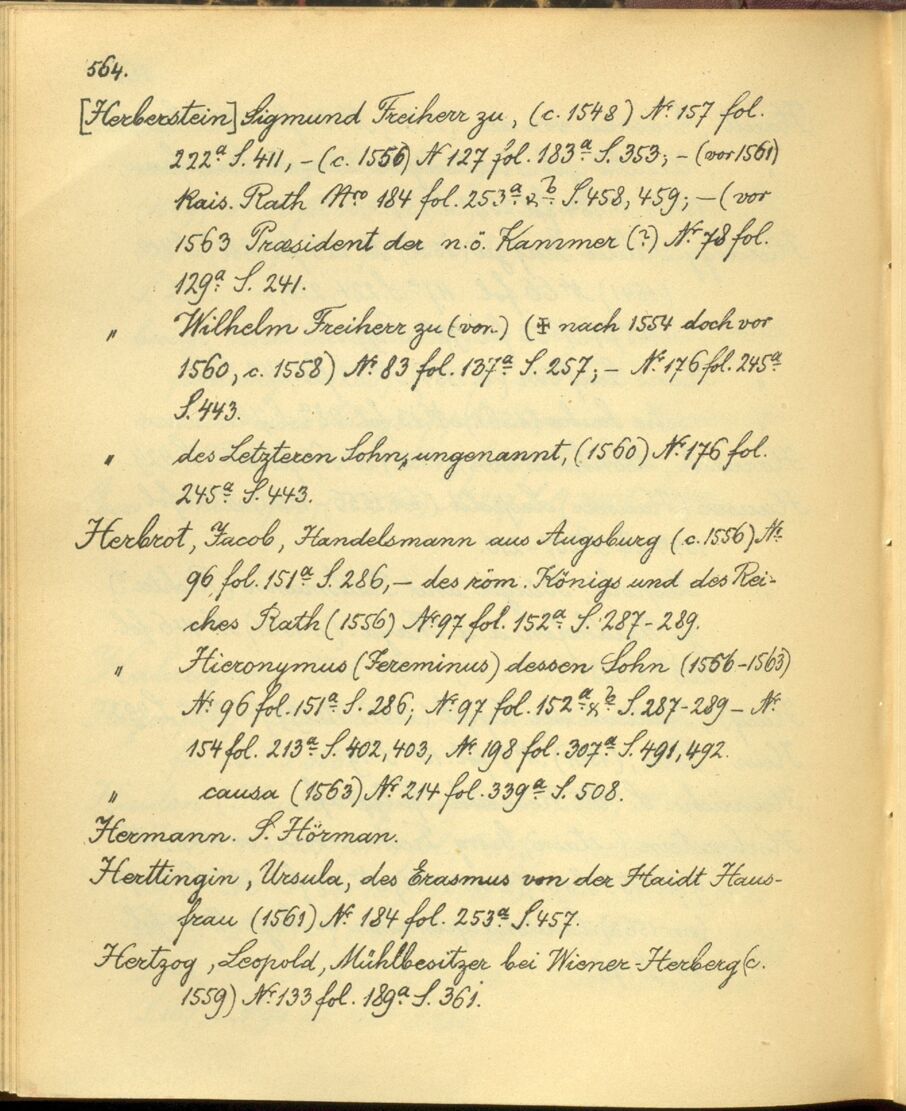 564.
[Herberstein] Sigmund Freiherr zu, (c. 1548) Nr. 157 fol.
222a S. 411, – (c. 1556) N 127 fol. 183a S. 353; – (vor 1561)
Kais. Rath Nro 184 fol. 253a & b S. 458, 459; – (vor
1563 Præsident der n.ö. Kammer (?) Nr. 78 fol.
129a S. 241.
" Wilhelm Freiherr zu (von) (✠ nach 1554 doch vor
1560, c. 1558) Nr. 83 fol. 137a S. 257; – Nr. 176 fol. 245a
S. 443.
" des Letzteren Sohn, ungenannt, (1560) Nr. 176 fol.
245a S. 443.
Herbrot, Jacob, Handelsmann aus Augsburg (c. 1556) Nr.
96 fol. 151a S. 286, – des röm. Königs und des Rei-
ches Rath (1556) Nr. 97 fol. 152a S. 287-289.
" Hieronymus (Jereminus) dessen Sohn (1556-1563)
Nr. 96 fol. 151a S. 286; Nr. 97 fol. 152a & b S. 287-289 – Nr.
154 fol. 213a S. 402, 403, Nr. 198 fol. 307a S. 491, 492.
" causa (1563) Nr. 214 fol. 339a S. 508.
Hermann. S. Hörman.
Herttingin, Ursula, des Erasmus von der Haidt Haus-
frau (1561) Nr. 184 fol. 253a S. 457.
Hertzog, Leopold, Mühlbesitzer bei Wiener-Herberg (c.
1559) Nr. 133 fol. 189a S. 361.